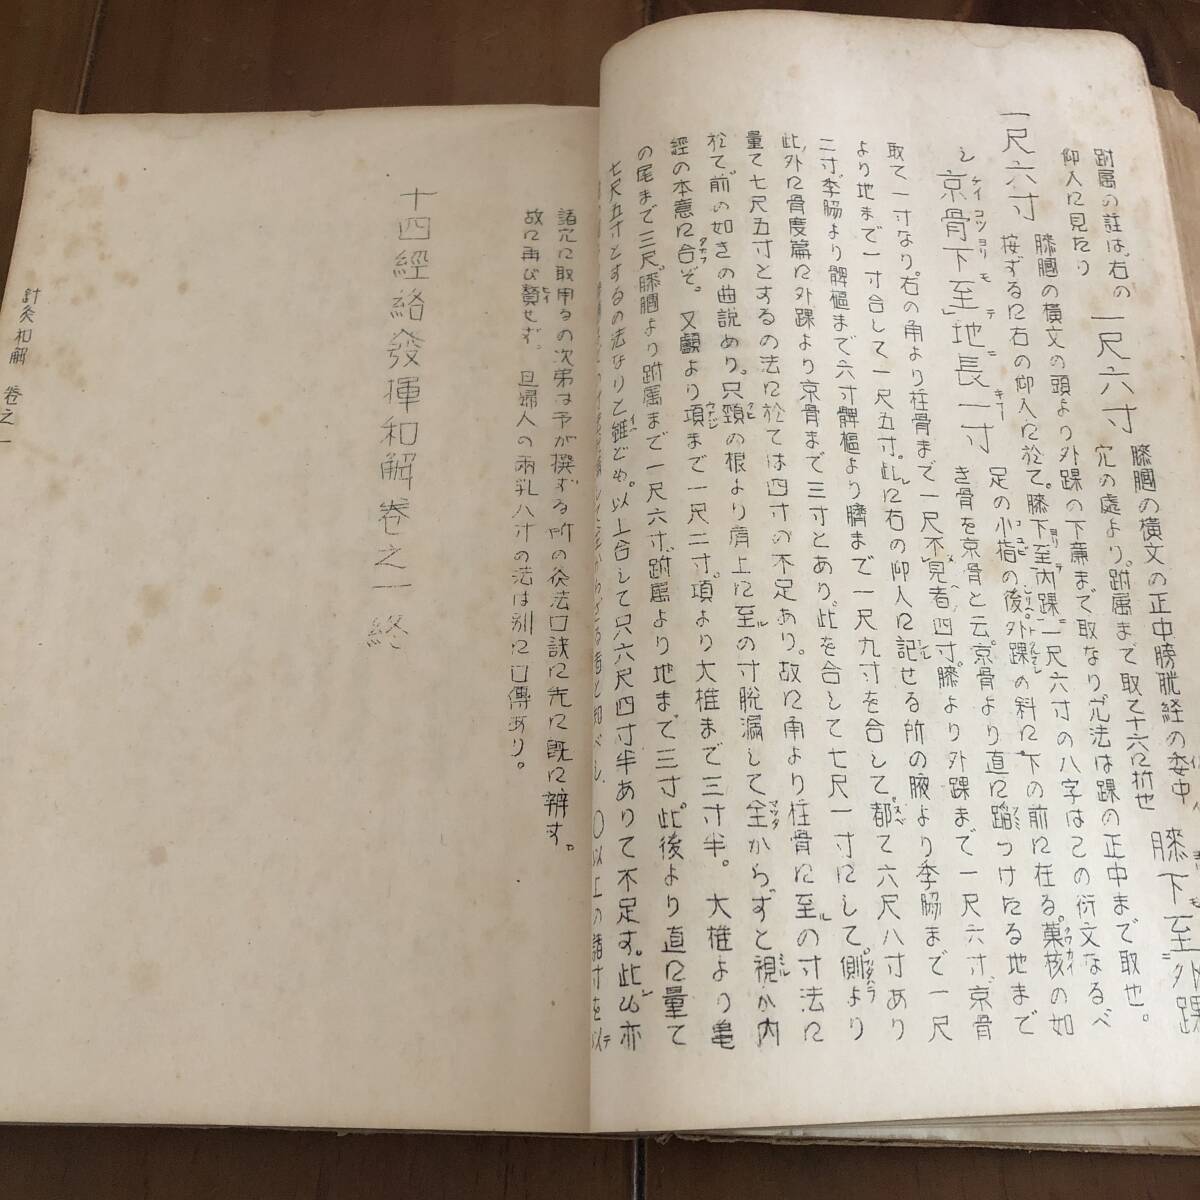 膝膕の橫文の正中膀胱経の委中 膝下至外踝
附属の註は、右の 一尺六寸 穴の處より。跗属まで取て十六に折也
仰人に見たり 膝膕の橫文の頭より外踝の下蕭まで取なり尤法は踝の正中まで取也。
一尺六寸 按ずるに右の仰人に於て。膝下至内踝一尺六寸の八字はこの衍文なるべ
し 京骨下至地長一寸 足の小指の後外踝の斜に下の前に在る。菓核の如
き骨を京骨と云。京骨より直に蹈つけたる地まで
取て一寸なり。右の角より柱骨まで一尺不見者四寸。膝より外踝まで一尺六寸、京骨
より地まで一寸合して一尺五寸。此に右の仰人に記せる所の腋より季脇まで一尺
二寸、季脇より髀樞まで六寸髀樞より膝まで一尺九寸を合して都て六尺八寸あり
此外に骨度篇に外踝より京骨まで三寸とあり、此を合して七尺一寸にして。側より
量て七尺五寸とするの法に於ては四寸の不足あり。故に角より柱骨に至の寸法に
於て前の如きの曲説あり。只頸の根より肩上に至の寸脱漏して全からずと視か内
經の本意に合ぞ。又顱より項まで一尺二寸。項より大椎まで三寸半。大椎より亀
の尾まで三尺。膝膕より跗属まで一尺六寸。跗属より地まで三寸。此後より直に量て
七尺五寸とするの法なりと雖ども。以上合して只六尺四寸半ありて不足す。此亦
○以上の諸寸を以
諸穴に取用るの次第は予が撰ずる所の灸法口訣に先に既に辨す。
故に再び贅せず。且婦人の兩乳八寸の法は別に口傳あり。
十四經絡發揮和解卷之一終
針灸和解 卷之一